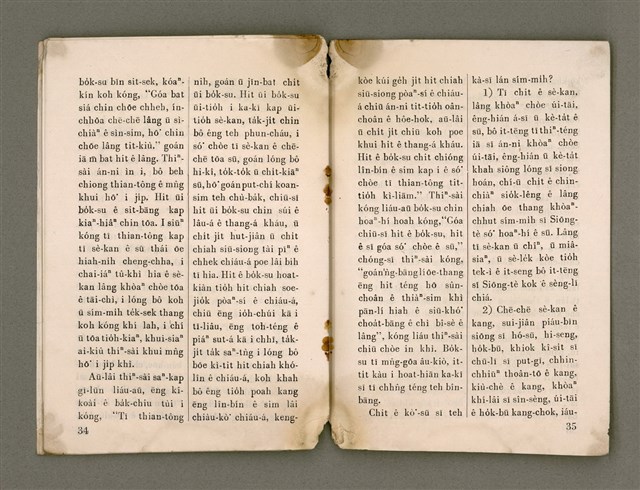 bo̍k-su bīn sit-sek, kóaⁿ-
kín koh kóng, “Góa bat
siá chin chōe chheh, ín-
chhōa chē-chē lâng ū sì-
chiàⁿ ê sìn-sim, hō͘ chin
chōe lâng tit-kiù.” goán
iā m̄ bat hit ê lâng. Thiⁿ-
sài án-ni ìn i, bô beh
chiong thian-tông ê mn̂g
khui hō͘ i ji̍p. Hit ūi
bo̍k-su ê sit-bāng kap
kiaⁿ-hiâⁿ chin tōa. I siūⁿ
kóng tī thian-tông kap
tī sè-kan ê sū thái ōe
hiah-nih cheng-chha, i
chai-iáⁿ tú-khí hia ê sè-
kan lâng khòaⁿ chòe tōa
ê tāi-chì, i lóng bô koh
ū sim-mi̍h te̍k-sek thang
koh kóng khí lah, i chí
ū tōa tio̍h-kiaⁿ, khui-siaⁿ
ai-kiù thiⁿ-sài khui mn̂g
hō͘ i ji̍p khì.
Aū-lâi thiⁿ-sài saⁿ-kap
gī-lūn liáu-aū, ēng kî-
koài ê ba̍k-chiu tùi i
kóng, “Tī thian-tông
34
nih, goán ū jīn-bat chi̍t
ūi bo̍k-su. Hit ūi bo̍k-su
ūi-tio̍h i ka-kī kap ūi-
tio̍h sè-kan, ta̍k-ji̍t chin
bô êng teh phun-cháu, i
só͘ chòe tī sè-kan ê chē-
chē tōa sū, goán lóng bô
hì-kì, to̍k-to̍k ū chi̍t-kiāⁿ
sū, hō͘ goán put-chí koan-
sim teh chú-ba̍k, chiū-sī
hit ūi bo̍k-su chin súi ê
lâu-á ê thang-á kháu, ū
chi̍t ji̍t hut-jiân ū chi̍t
chiah siū-siong tài pīⁿ ê
chhek chiáu-á poe lâi bih
tī hia. Hit ê bo̍k-su hoat-
kiàn tio̍h hit chiah soe-
jio̍k pòaⁿ-sí ê chiáu-á,
chiū ēng io̍h-chúi kā i
tī-liâu, ēng toh-téng ê
piáⁿ sut-á kā i chhī, ta̍k-
ji̍t ta̍k saⁿ-tǹg i lóng bô
bōe kì-tit hit chiah khó-
lîn ê chiáu-á, koh khah
bô êng tio̍h poah kang
ēng lîn-bín ê sim lâi
chiàu-kò͘ chiáu-á, keng-
kòe kúi ge̍h ji̍t hit chiah
siū-siong pòaⁿ-sí ê chiáu-
á chiū án-ni tit-tio̍h oân-
choân ê hôe-hok, aū-lâi
ū chi̍t ji̍t chiū koh poe
khui hit ê thang-á kháu.
Hit ê bo̍k-su chit chióng
lîn-bín ê sim kap i ê só͘
chòe tī thian-tông tit-
tio̍h kì-liām.” Thiⁿ-sài
kóng liáu-aū bo̍k-su chin
hoaⁿ-hí hoah kóng, “Góa
chiū-sī hit ê bo̍k-su, hit
ê sī góa só͘ chòe ê sū,”
chóng-sī thiⁿ-sài kóng,
“goán n̄g-bāng lí ōe-thang
ēng hit téng hō sûn-
choân ê thià-sim khì
pān-lí hiah ê siū-khó͘
choa̍t-bāng ê chí bī-sè ê
lâng”, kóng liáu thiⁿ-sài
chiū chòe in khì. Bo̍k-
su tī mn̂g-góa áu-kiò, it-
tit káu i hoat-hiān ka-kī
sī tī chhn̂g téng teh bîn-
bāng.
Chit ê kò͘-sū sī teh
kà-sī lán sím-mi̍h?
1) Tī chit ê sè-kan,
lâng khòaⁿ chòe úi-tāi,
éng-hián á-sī ū kè-ta̍t ê
sū, bô it-tēng tī thiⁿ-téng
iā sī án-ni khòaⁿ chòe
úi-tāi, êng-hián ū kè-ta̍t
khah siông lóng sī siong
hoán, chí-ū chit ê chin-
chiàⁿ sio̍k-lêng ê lâng
chiah ōe thang khòaⁿ-
chhut sím-mi̍h sī Siōng-
tè só͘ hoaⁿ-hí ê sū. Lâng
tī sè-kan ū chîⁿ, ū miâ-
siaⁿ, ū sè-le̍k kòe tio̍h
tek-i ê it-seng bô it-tēng
sī Siōng-tè kok ê sèng-lī
chiá.
2) Chē-chē sè-kan ê
kang, sui-jiân piáu-bīn
siōng sī hó-sū, hi-seng,
ho̍k-bū, khiok kì-sit sī
chū-lī sī put-gī, chhin-
chhiūⁿ thoân-tō ê kang,
kiù-chè ê kang, khòaⁿ
khí-lâi sī sîn-sèng, úi-tāi
ê ho̍k-bū kang-chok, iáu-
35